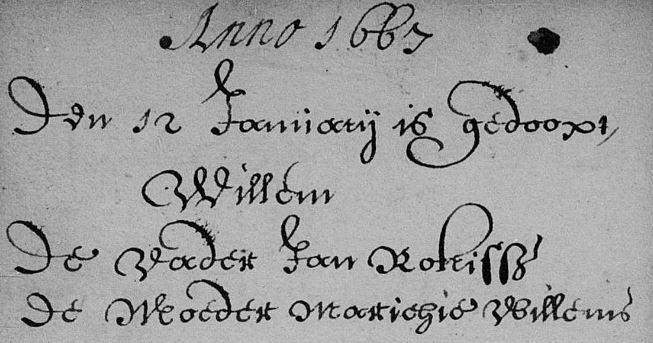 Anno 1667
Den 12 Januarij is gedoopt,
Willem
De Vader Jan
de Moeder Marichie Willems